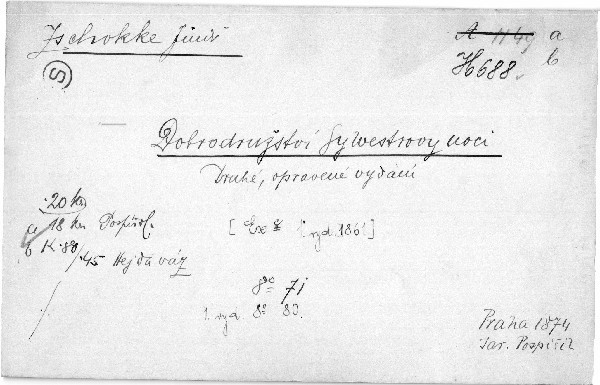 Zschokke Jindř.
A 1149 a
H 688 b
S
Dobrodružství Sylwestrovy noci
Druhé, opravené vydání
20 kn
a 18 kn Pospíšil.
[Ex b 1 vyd. 1861]
b K. 88/45 Hejda váz
8° 71
1. vyd 8° 83.
Praha 1874
Jar. Pospíšil